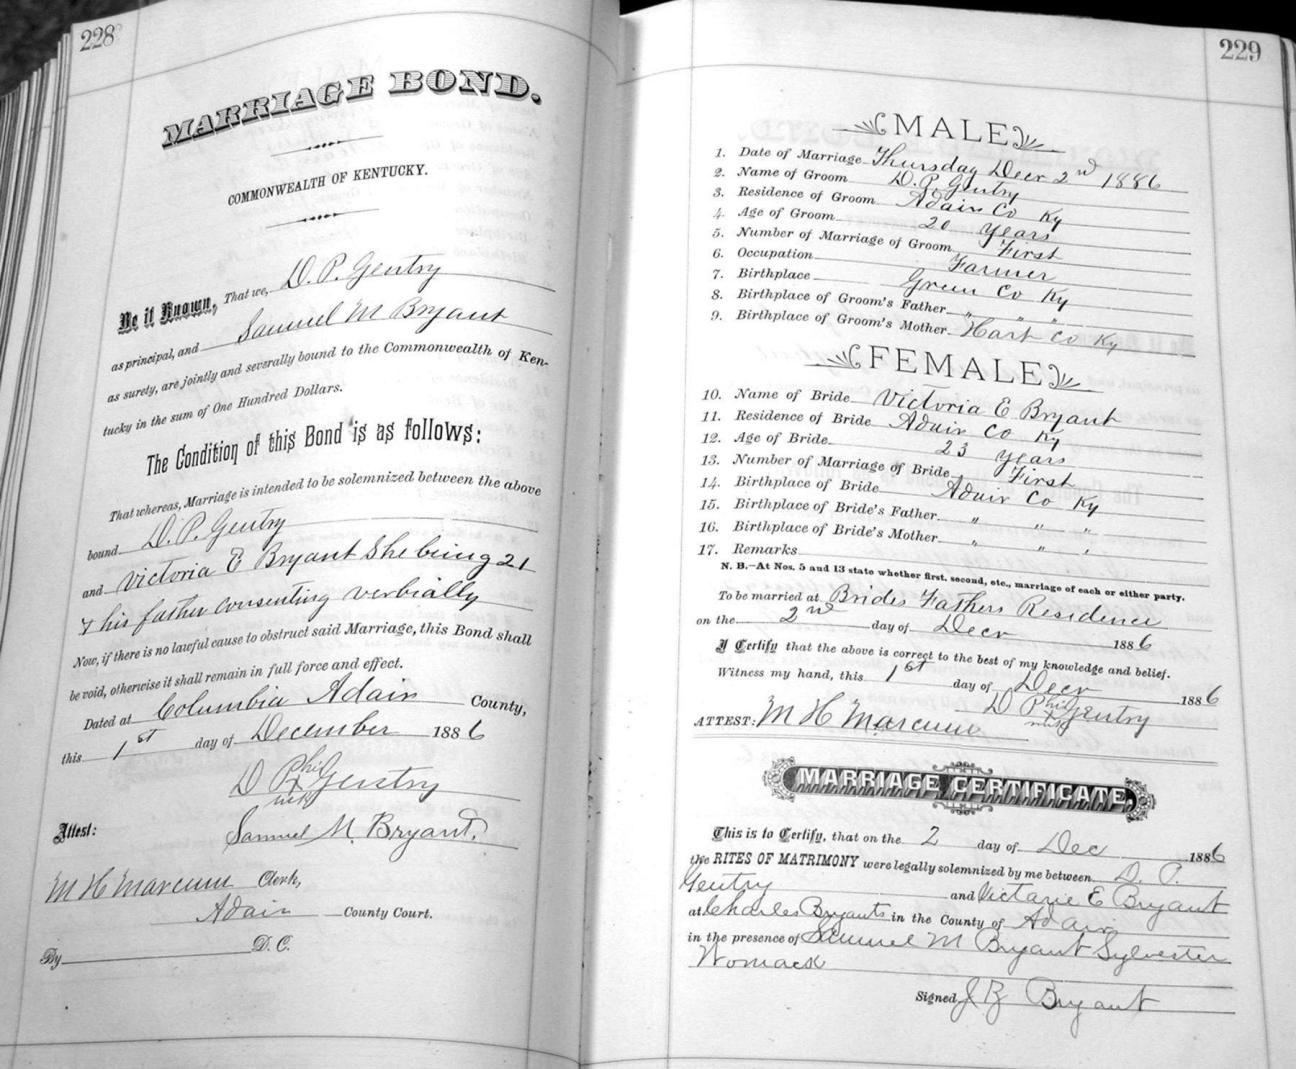 228
MARRIAGE BOND.
COMMONWEALTH OF KENTUCKY.
Be it Known, That we, D. P. Gentry
as principal, and Samuel M Bryant
as surety, are jointly and severally bound to the Commonwealth of Ken-
tucky in the sum of One Hundred Dollars.
The Condition of this Bond is as follows:
That whereas, Marriage is intended to be solemnized between the above
bound D. P. Gentry
and Victoria E Bryant She being 21
& his father consenting verbially
Now, if there is no lawful cause to obstruct said Marriage, this Bond shall
be void, otherwise it shall remain in full force and effect.
Dated at Columbia Adair County,
this 1st day of December 1886
his
D P x Gentry
mk
Attest: Samuel M. Bryant.
M H Marcum Clerk,
Adair County Court.
By D. C.
229
MALE
1. Date of Marriage Thursday Decr 2nd 1886
2. Name of Groom D. P. Gentry
3. Residence of Groom Adair Co Ky
4. Age of Groom 20 years
5. Number of Marriage of Groom First
6. Occupation Farmer
7. Birthplace Green Co Ky
8. Birthplace of Groom's Father " " "
9. Birthplace of Groom's Mother Hart Co Ky
FEMALE
10. Name of Bride Victoria E Bryant
11. Residence of Bride Adair Co Ky
12. Age of Bride 23 years
13. Number of Marriage of Bride First
14. Birthplace of Bride Adair Co Ky
15. Birthplace of Bride's Father " " "
16. Birthplace of Bride's Mother " " "
17. Remarks
N. B.—At Nos. 5 and 13 state whether first, second, etc., marriage of each or either party.
To be married at Brides Fathers Residence
on the 2nd day of Decr 1886
I Certify that the above is correct to the best of my knowledge and belief.
Witness my hand, this 1st day of Decr 1886
his
D P x Gentry
mk
ATTEST: M H Marcum
MARRIAGE CERTIFICATE.
This is to Certify, that on the 2 day of Dec 1886
the RITES OF MATRIMONY were legally solemnized by me between D. P.
Gentry and Victorie E Bryant
at Charles Bryants in the County of Adair
in the presence of Samuel M Bryant Sylvester
Womack
Signed J Z Bryant